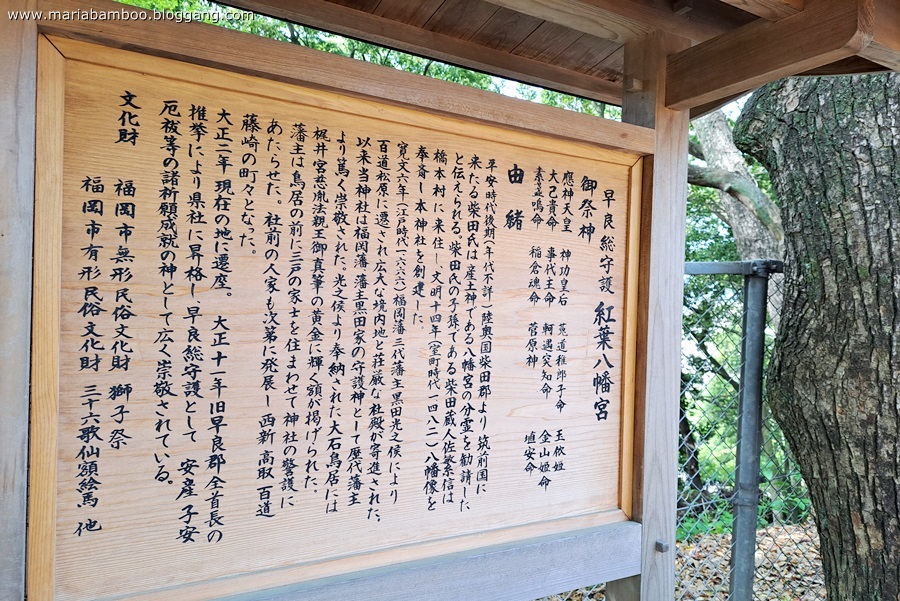 www.mariabamboo.bloggang.com
早良総守護 紅葉八幡宮
御祭神
應神天皇 神功皇后 菟道稚郎子命 玉依姫
大己貴命 事代主命 軻遇突知命 金山姫命
素盞嗚命 稲倉魂命 菅原神 埴安命
由緒
平安時代後期(年代不詳)陸奥国柴田郡より筑前国に
来たる柴田氏は産土神である八幡宮の分霊を勧請した
と伝えられる。柴田氏の子孫である柴田蔵人佐繁信は
橋本村に来住し、文明十四年(室町時代一四八二)八幡像を
奉斎し本神社を創建した。
寛文六年(江戸時代一六六六)福岡藩三代藩主黒田光之候により
百道松原に遷され広大な境内地と荘厳な社殿が寄進された。
以来当神社は福岡藩藩主黒田家の守護神として歴代藩主
より篤く崇敬された。光之候より奉納された大石鳥居には
梶井宮慈胤法親王御真筆の黄金に輝く額が掲げられた。
藩主は鳥居の前に三戸の家士を住まわせて神社の警護に
あたらせた。社前の人家も次第に発展し西新 高取 百道
藤崎の町々となった。
大正二年 現在の地に遷座。 大正十一年旧早良郡全首長の
推挙により県社に昇格し、早良総守護として 安産 子安
厄祓等の諸祈願成就の神として広く崇敬されている。
文化財 福岡市無形民俗文化財 獅子祭
福岡市有形民俗文化財 三十六歌仙額絵馬 他